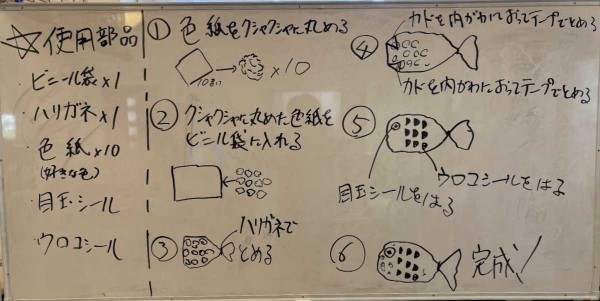 ☆使用部品
・ビニール袋×1
・ハリガネ×1
・色紙×10
(好きな色)
・目玉シール
・ウロコシール
① 色紙をクシャクシャに丸める
10まい
×10
② クシャクシャに丸めた色紙を
ビニール袋に入れる
③ ハリガネで
とめる
④ カドを内がわにおってテープでとめる
カドを内がわにおってテープでとめる
⑤
目玉シールをはる
ウロコシールをはる
⑥ 完成!